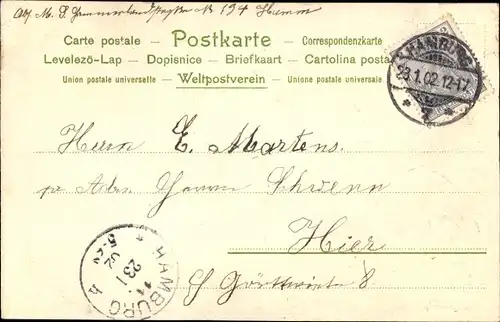 Abs. M. S. № 194 Hamm
Carte postale - Postkarte - Correspondenzkarte
Levelező-Lap - Dopisnice - Briefkaart - Cartolina posta
Union postale universelle - Weltpostverein - Unione postale universale
HAMBURG
23.1.02.12-1N
* 7 *
Herrn E. Martens.
pr Adr. Herrn Schwenn
Hier
HAMBURG A
23.1
02